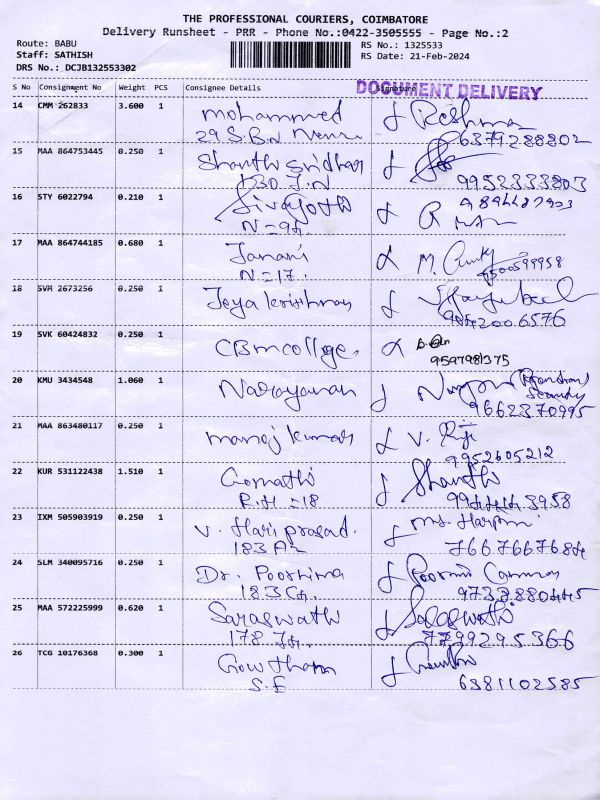 THE PROFESSIONAL COURIERS, COIMBATORE
Delivery Runsheet - PRR - Phone No.:0422-3505555 - Page No.:2
Route: BABU RS No.: 1325533
Staff: SATHISH RS Date: 21-Feb-2024
DRS No.: DCJB132553302
DOCUMENT DELIVERY
S No Consignment No Weight PCS Consignee Details Signature
14 CMM 262833 3.600 1 mohammed Reshma
29 S.B.N 6379288802
15 MAA 864753445 0.250 1 Shanthi Sridhar
130 J.N 9952333803
16 STY 6022794 0.210 1
N=94.
17 MAA 864744185 0.680 1 Janani M.
N=17. 9500599958
18 SVM 2673256 0.250 1 Jeya krishnan
9842006576
19 SVK 60424832 0.250 1 CBM college.
9597981375
20 KMU 3434548 1.060 1 Narayanan
9662370995
21 MAA 863480117 0.250 1 manoj kumar V.
9952605212
22 KUR 531122438 1.510 1 Gomathi Shanthi
R.H =18
23 IXM 505903919 0.250 1 V. Hari prasad.
183 A2
24 SLM 340095716 0.250 1 Dr. Poornima
25 MAA 572225999 0.620 1 Saraswathi Saraswathi
7799295366
26 TCG 10176368 0.300 1 Gowtham
6381102585